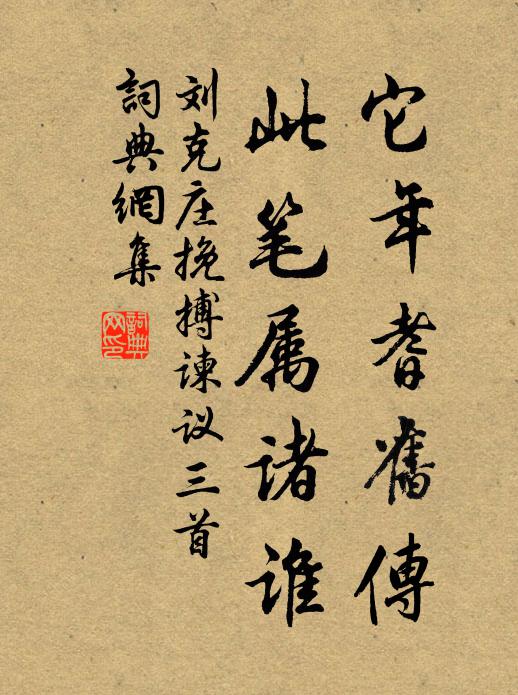 它年耆舊傳
此笔属诸谁
刘克庄挽搏谏议三首
詞典網集
詞典
网印